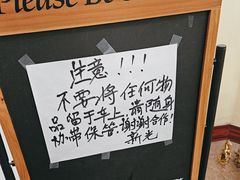 Please Be
注意!!!
不要将任何物
品留于车上,请随身
协带保管,谢谢合作!
新光